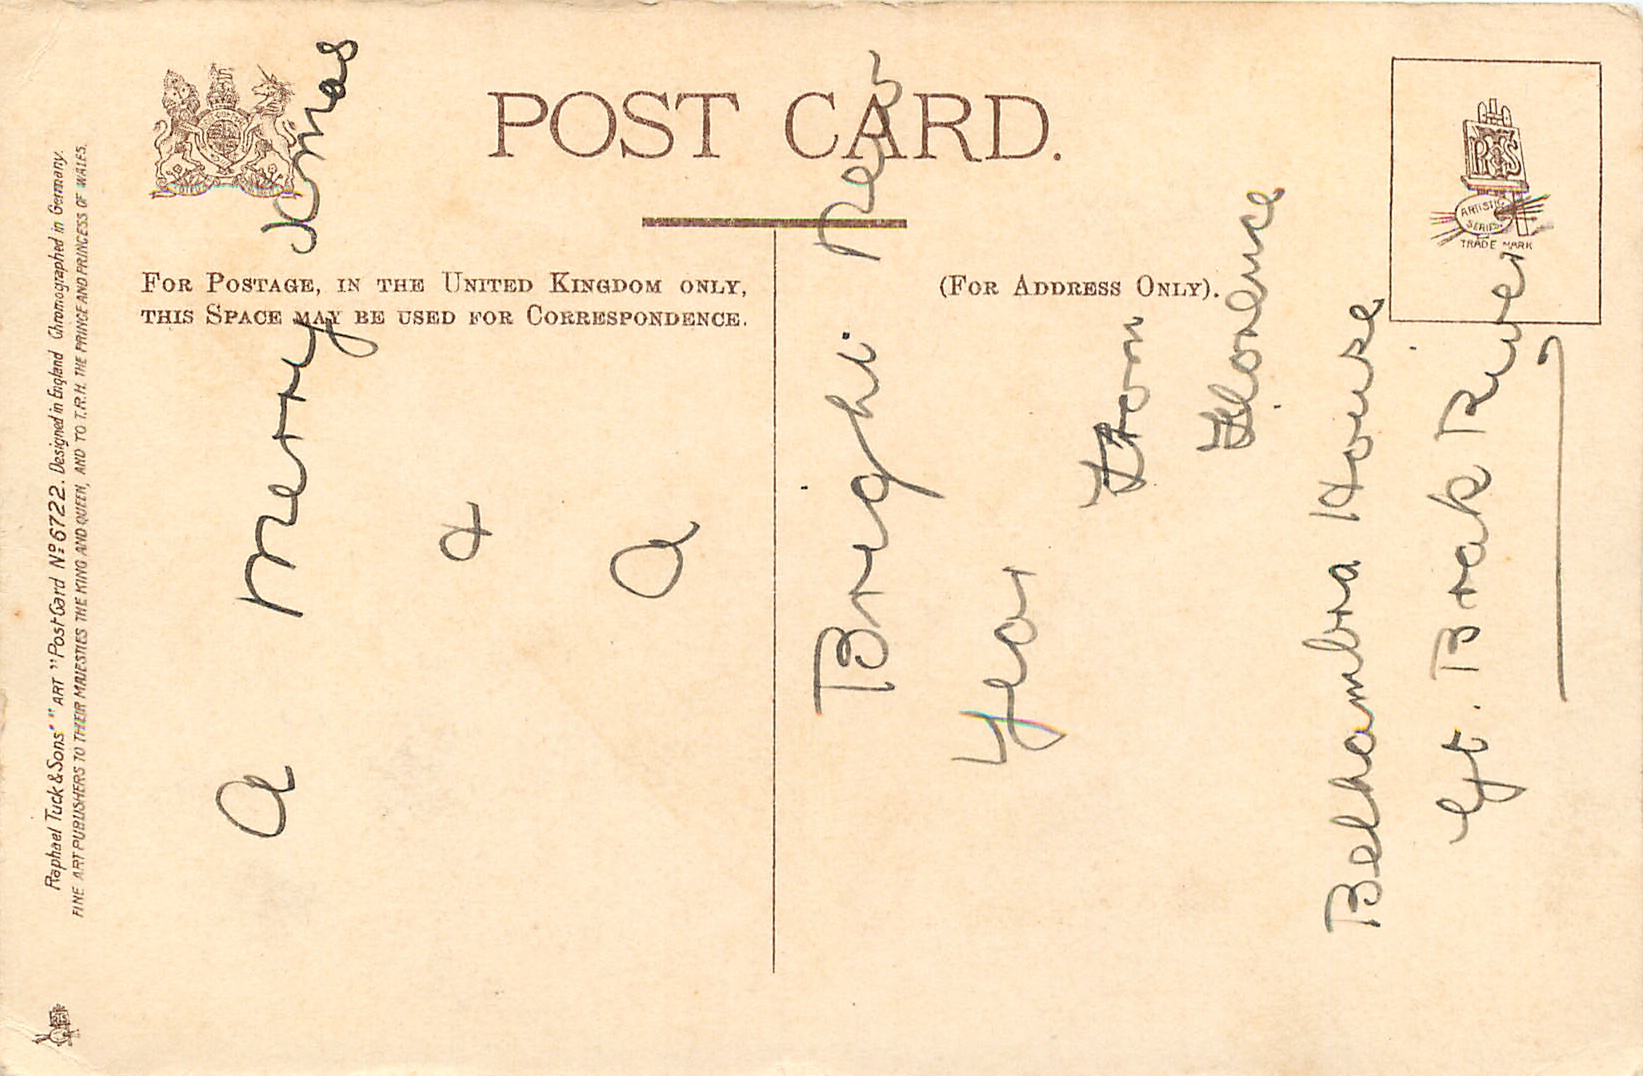 POST CARD.
FOR POSTAGE, IN THE UNITED KINGDOM ONLY,
THIS SPACE MAY BE USED FOR CORRESPONDENCE.
(FOR ADDRESS ONLY).
RTS
ARTISTIC
SERIES
TRADE MARK
Raphael Tuck & Sons' "ART" Post Card Nº 6722. Designed in England Chromographed in Germany.
FINE ART PUBLISHERS TO THEIR MAJESTIES THE KING AND QUEEN, AND TO T.R.H. THE PRINCE AND PRINCESS OF WALES.
a Merry Xmas
&
a
Bright New
Year
From
Florence
Belhambra House
Gt. Brak River